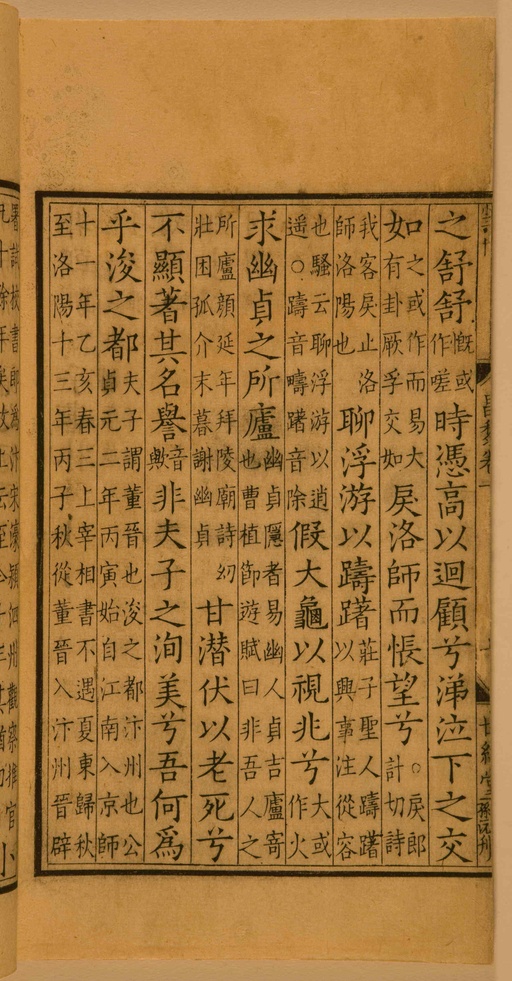 昌黎卷一 世綵堂 孫沅刊
之舒舒慨或作嗟時憑高以迴顧兮涕泣下之交
如之或作而易大有卦厥孚交如戾洛師而悵望兮○戾郎計切詩
我客戾止洛師洛陽也聊浮游以躊躇莊子聖人躊躇以興事注從容
也騷云聊浮游以逍遥○躊音疇躇音除假大龜以視兆兮大或作火
求幽貞之所廬幽貞隱者易幽人貞吉廬寄也曹植節遊賦曰非吾人之
所廬顔延年拜陵廟詩幼壯困孤介末暮謝幽貞甘潜伏以老死兮
不顯著其名譽音歟非夫子之洵美兮吾何爲
乎浚之都夫子謂董晉也浚之都汴州也公貞元二年丙寅始自江南入京師
十一年乙亥春三上宰相書不遇夏東歸秋至洛陽十三年丙子秋從董晉入汴州晉辟